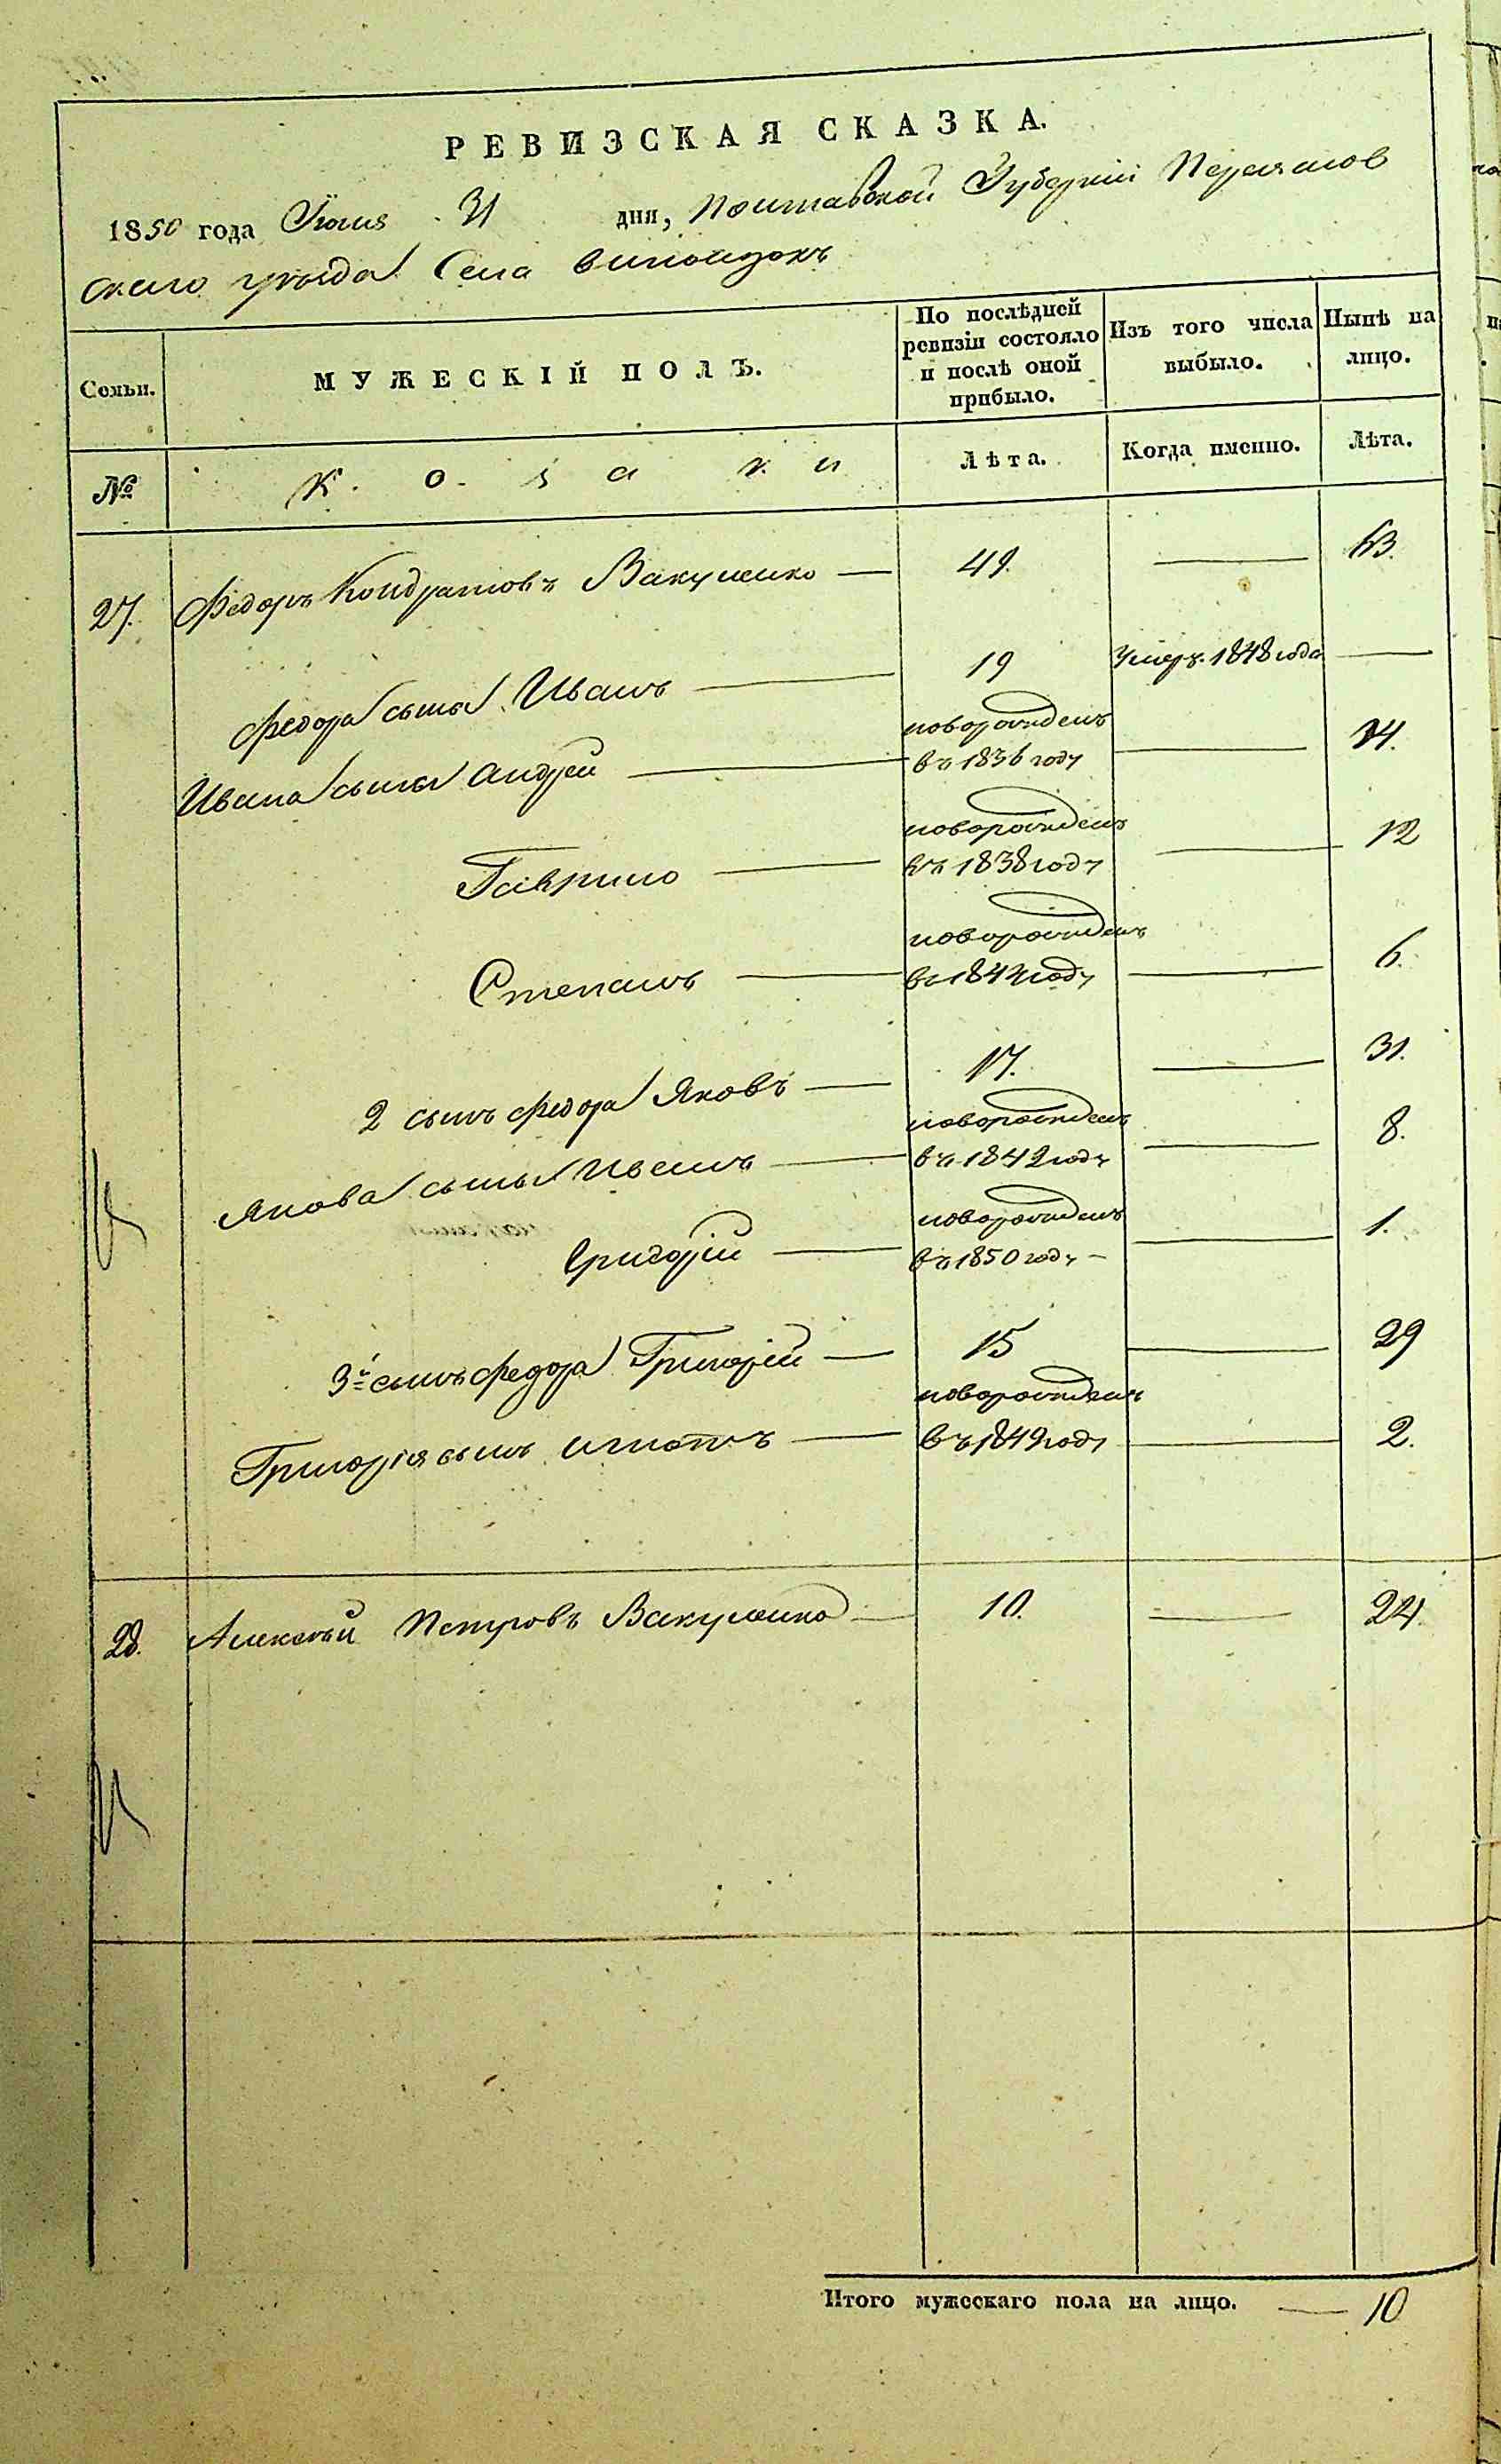 РЕВИЗСКАЯ СКАЗКА.
1850 года Іюля 31 дня, Полтавской Губерніи Переяслов
скаго уѣзда Села
Семьи. МУЖЕСКІЙ ПОЛЪ. По послѣдней ревизіи состояло и послѣ оной прибыло. Изъ того числа выбыло. Нынѣ на лицо.
№ Козаки Лѣта. Когда именно. Лѣта.
27. Федоръ Кондратовъ Вакуленко — 49. — 63.
Федора сынъ Иванъ — 19 Умеръ 1848 года —
Ивана сынъ Андрей — новорожденъ въ 1836 году — 14.
Гаврило — новорожденъ въ 1838 году — 12
Степанъ — новорожденъ въ 1844 году — 6.
2 сынъ Федора Яковъ — 17. — 31.
Якова сынъ Иванъ — новорожденъ въ 1842 году — 8.
Григорій — новорожденъ въ 1850 году — 1.
3й сынъ Федора Григорій — 15 — 29
Григорія сынъ Игнатъ — новорожденъ въ 1849 году — 2.
28. Алексѣй Петровъ Вакуленко — 10. — 24.
Итого мужескаго пола на лицо. — 10